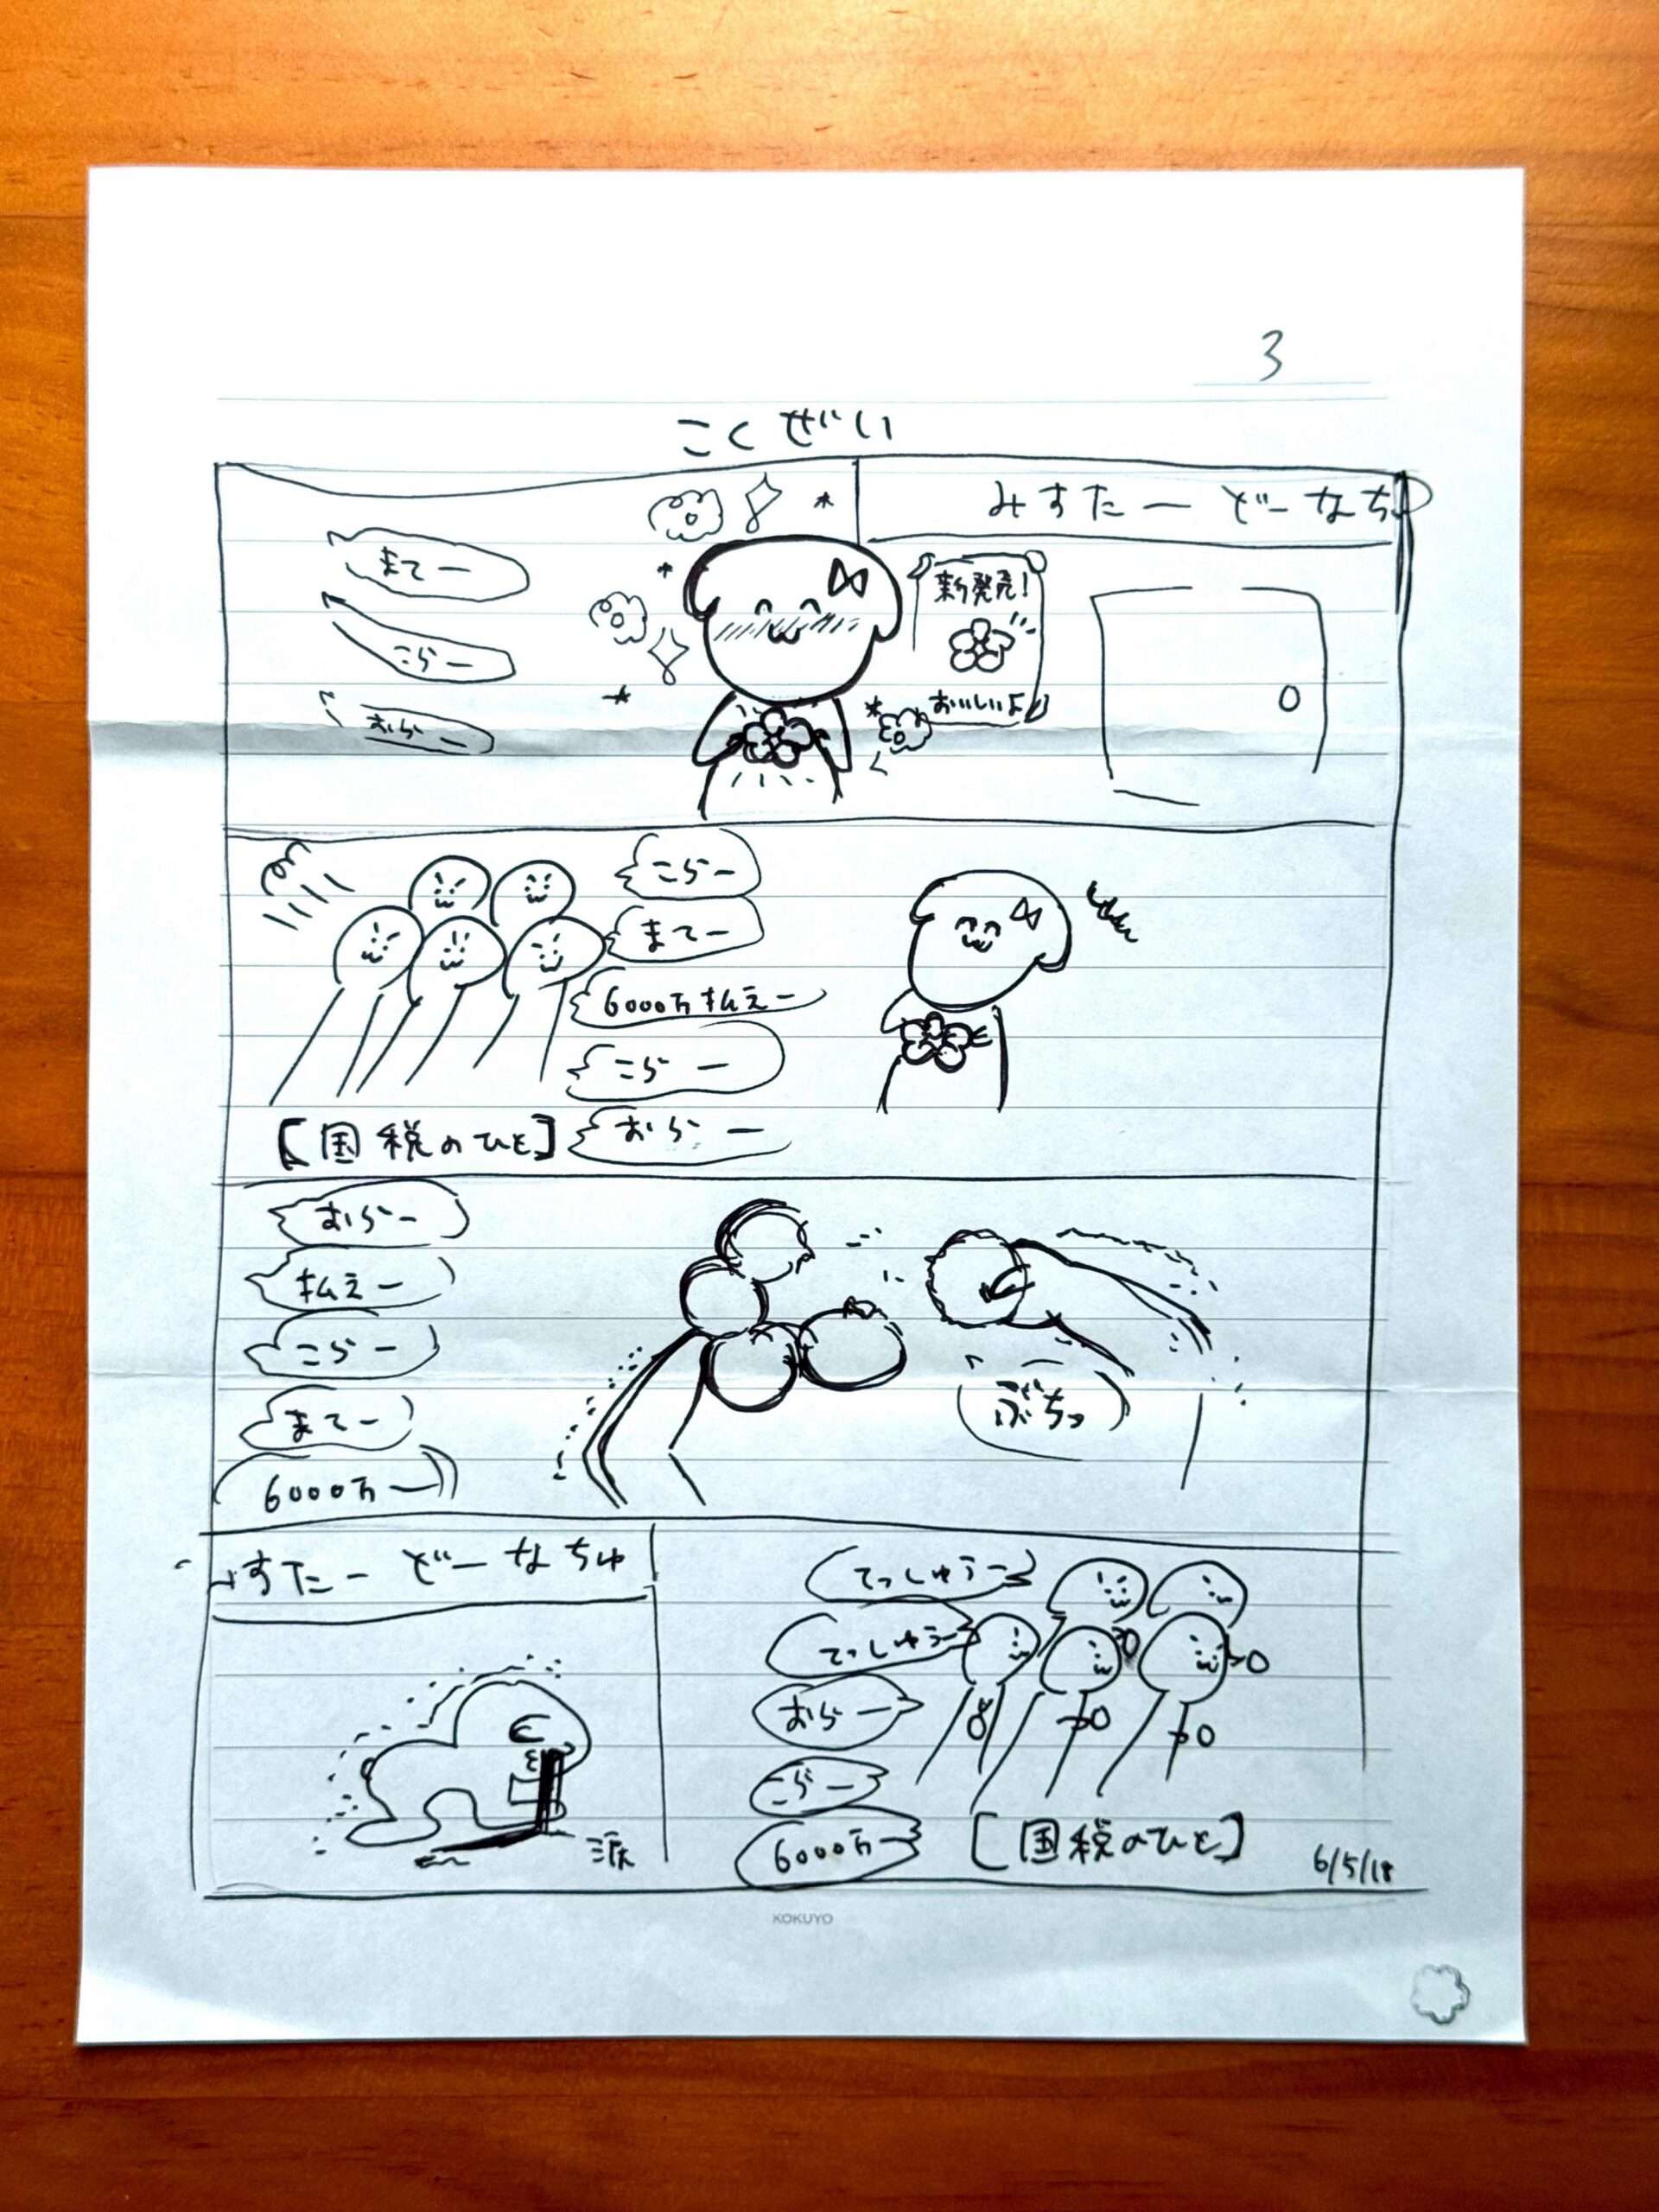 3
こくぜい
みすたーどーなちゅ
新発売!
おいしいよ
まてー
こらー
おらー
こらー
まてー
6000万払えー
こらー
おらー
【国税のひと】
おらー
払えー
こらー
まてー
6000万ー
ぶちっ
みすたーどーなちゅ
涙
てっしゅうー
てっしゅうー
おらー
こらー
6000万ー
[国税のひと]
6/5/18
KOKUYO